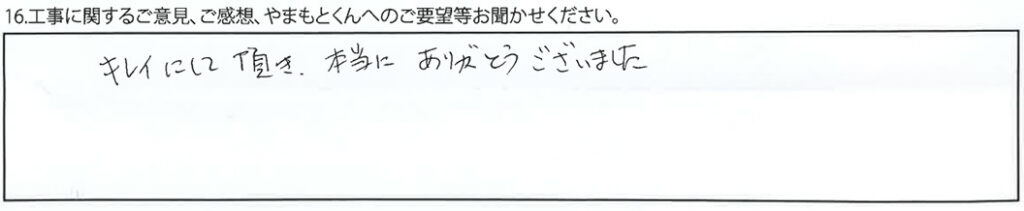 16.工事に関するご意見、ご感想、やまもとくんへのご要望等お聞かせください。
キレイにして頂き、本当に ありがとうございました